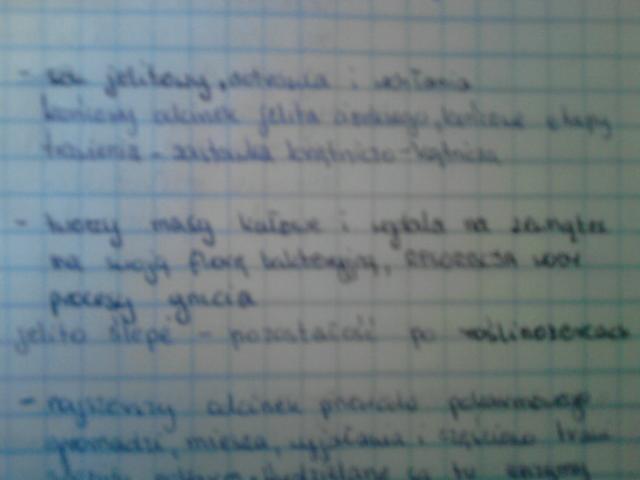 - sok jelitowy, dotrawia i wchłania
końcowy odcinek jelita cienkiego, końcowe etapy
trawienia - zastawka krętniczo-kątnicza
- tworzy masy kałowe i wydala na zewnątrz
ma swoją florę bakteryjną, RESORBCJA wody
procesy gnicia
jelito ślepe - pozostałość po roślinożercach
- najszerszy odcinek przewodu pokarmowego
gromadzi, miesza, wyjaławia i częściowo trawi
są tu enzymy